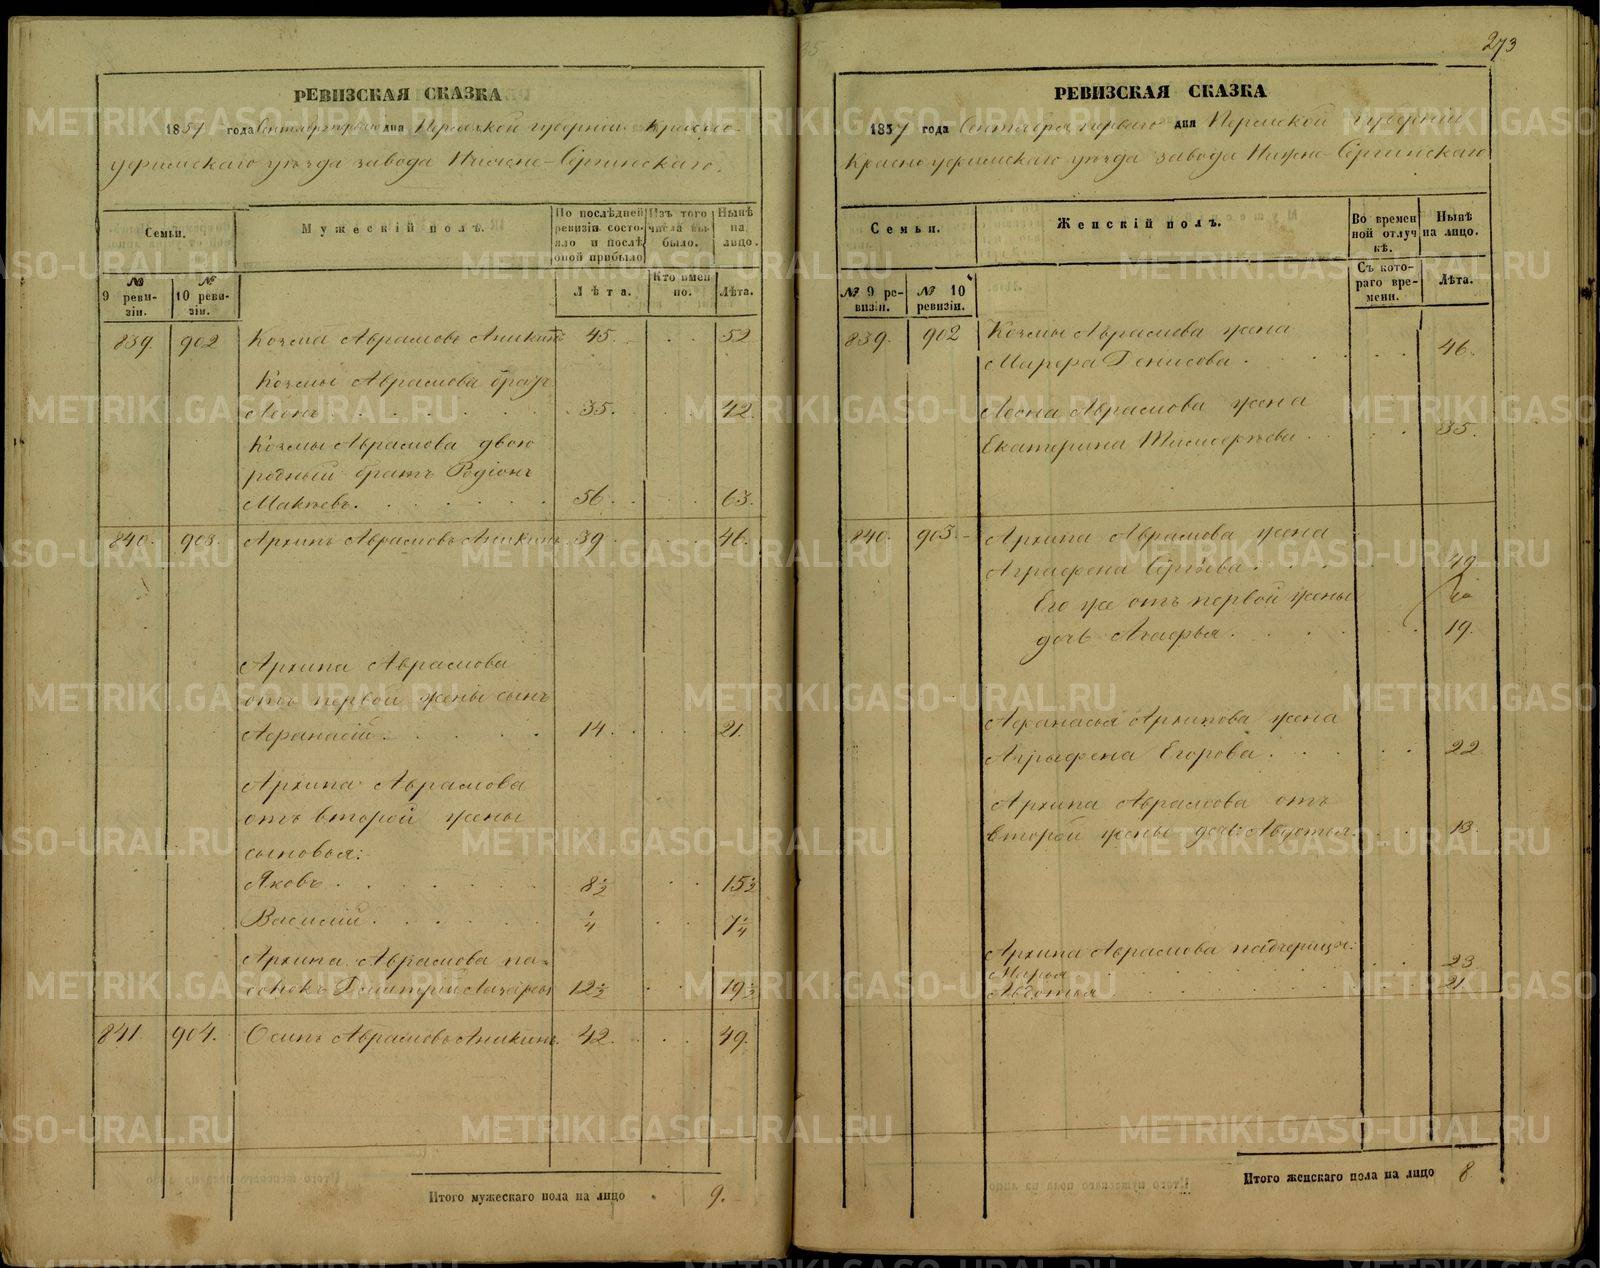 273
РЕВИЗСКАЯ СКАЗКА
1857 года Сентября перваго дня Пермской губернии Красно-
уфимскаго уѣзда завода Нижне-Сергинскаго.
Семьи.
Мужескій полъ.
По послѣдней ревизіи состояло и послѣ оной прибыло
Изъ того числа выбыло.
Нынѣ на лицо.
№ 9 ревизіи.
№ 10 ревизіи.
Лѣта.
Кто именно.
Лѣта.
839. 902 Козма Аврамовъ Аникинъ 45. 52
Козмы Аврамова братъ
Леонъ 35. 42.
Козмы Аврамова двою
родный братъ Родіонъ
Макѣевъ. 56. 63.
840. 903. Архипъ Аврамовъ Аникинъ 39. 46.
Архипа Аврамова
отъ первой жены сынъ
Афанасій. 14. 21.
Архипа Аврамова
отъ второй жены
сыновья:
Яковъ. 8½ 15½
Василій. ¼ 7¼
Архипа Аврамова па=
сынокъ Дмитрій Лазаревъ 12½ 19½
841. 904. Осипъ Аврамовъ Аникинъ. 42. 49.
Итого мужескаго пола на лицо 9.
РЕВИЗСКАЯ СКАЗКА
1857 года Сентября перваго дня Пермской губерніи
Красноуфимскаго уѣзда завода Нижне-Сергинскаго
Семьи.
Женскій полъ.
Во временной отлучкѣ.
Нынѣ на лицо.
№ 9 ревизіи.
№ 10 ревизіи.
Съ котораго времени.
Лѣта.
839. 902 Козмы Аврамова жена
Марфа Денисова. 46.
Леона Аврамова жена
Екатерина Тимофеѣва. 35.
840. 903. Архипа Аврамова жена
Аграфена Сергѣева. 49
Его же отъ первой жены
дочь Агафья. 19.
Афанасья Архипова жена
Аграфена Егорова. 22
Архипа Аврамова отъ
второй жены дочь Авдотья. 13.
Архипа Аврамова падчерицы:
Марья 23
Авдотья 21
Итого женскаго пола на лицо 8
METRIKI.GASO-URAL.RU